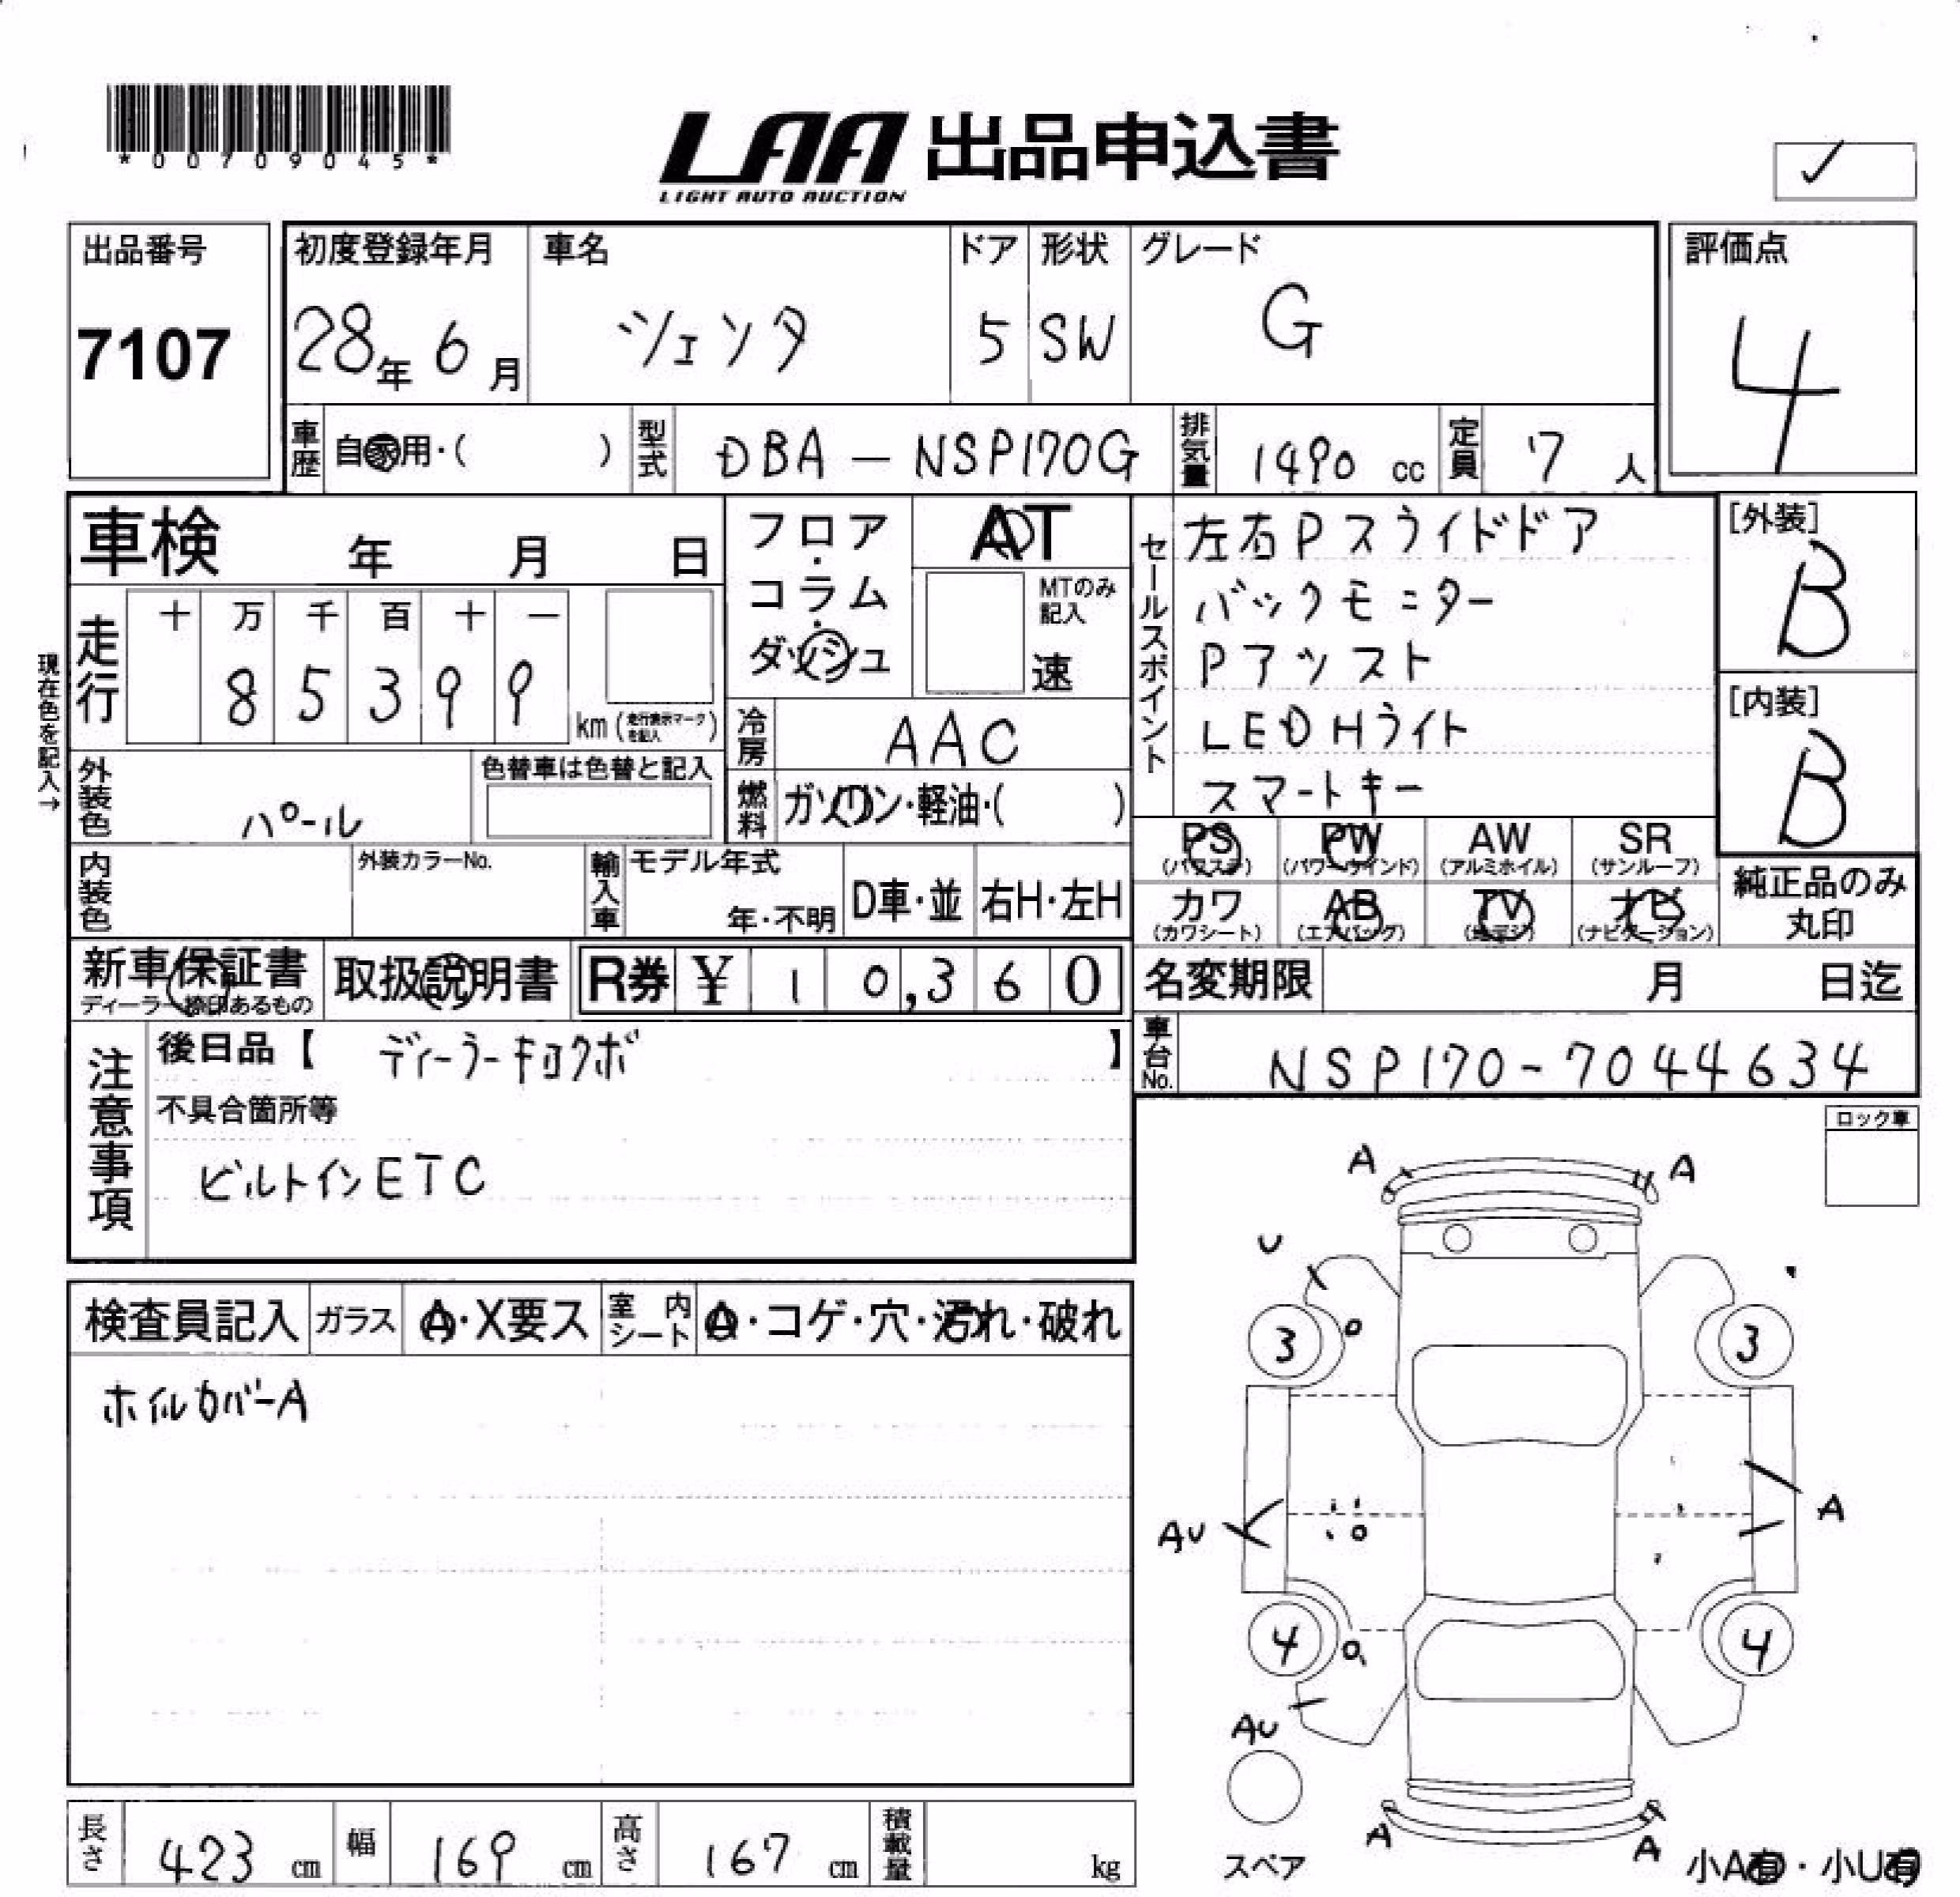 *00709045*
LAA 出品申込書
LIGHT AUTO AUCTION
出品番号
7107
初度登録年月
28年 6月
車名
シェンタ
ドア
5
形状
SW
グレード
G
評価点
4
車歴 自家用・( )
型式 DBA-NSP170G
排気量 1490 cc
定員 7 人
車検 年 月 日
走行
十 万 千 百 十 一
8 5 3 9 9
km (走行表示マークを記入)
現在色を記入→
フロア・コラム・ダッシュ
AT
MTのみ記入
速
冷房 AAC
燃料 ガソリン・軽油・( )
セールスポイント
左右Pスライドドア
バックモニター
Pアシスト
LEDHライト
スマートキー
[外装]
B
[内装]
B
外装色 パール
色替車は色替と記入
内装色
外装カラーNo.
輸入車
モデル年式
年・不明
D車・並
右H・左H
PS (パワステ)
PW (パワーウインド)
AW (アルミホイル)
SR (サンルーフ)
カワ (カワシート)
AB (エアバッグ)
TV (地デジ)
ナビ (ナビゲーション)
純正品のみ
丸印
新車保証書
ディーラー捺印あるもの
取扱説明書
R券 ¥ 1 0,3 6 0
名変期限 月 日迄
車台No. NSP170-7044634
注意事項
後日品【 ディーラーキロクボ 】
不具合箇所等
ビルトインETC
ロック車
検査員記入
ガラス A・X要ス
室内シート A・コゲ・穴・汚れ・破れ
ホイルカバーA
A A
U
3 3
AU A
4 4
AU
A A
スペア
小A有・小U有
長さ 423 cm
幅 169 cm
高さ 167 cm
積載量 kg